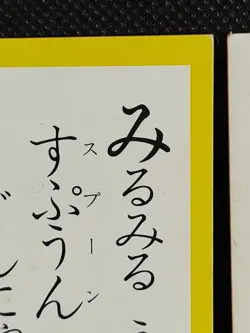 みるみる
すぷうん
スプーン